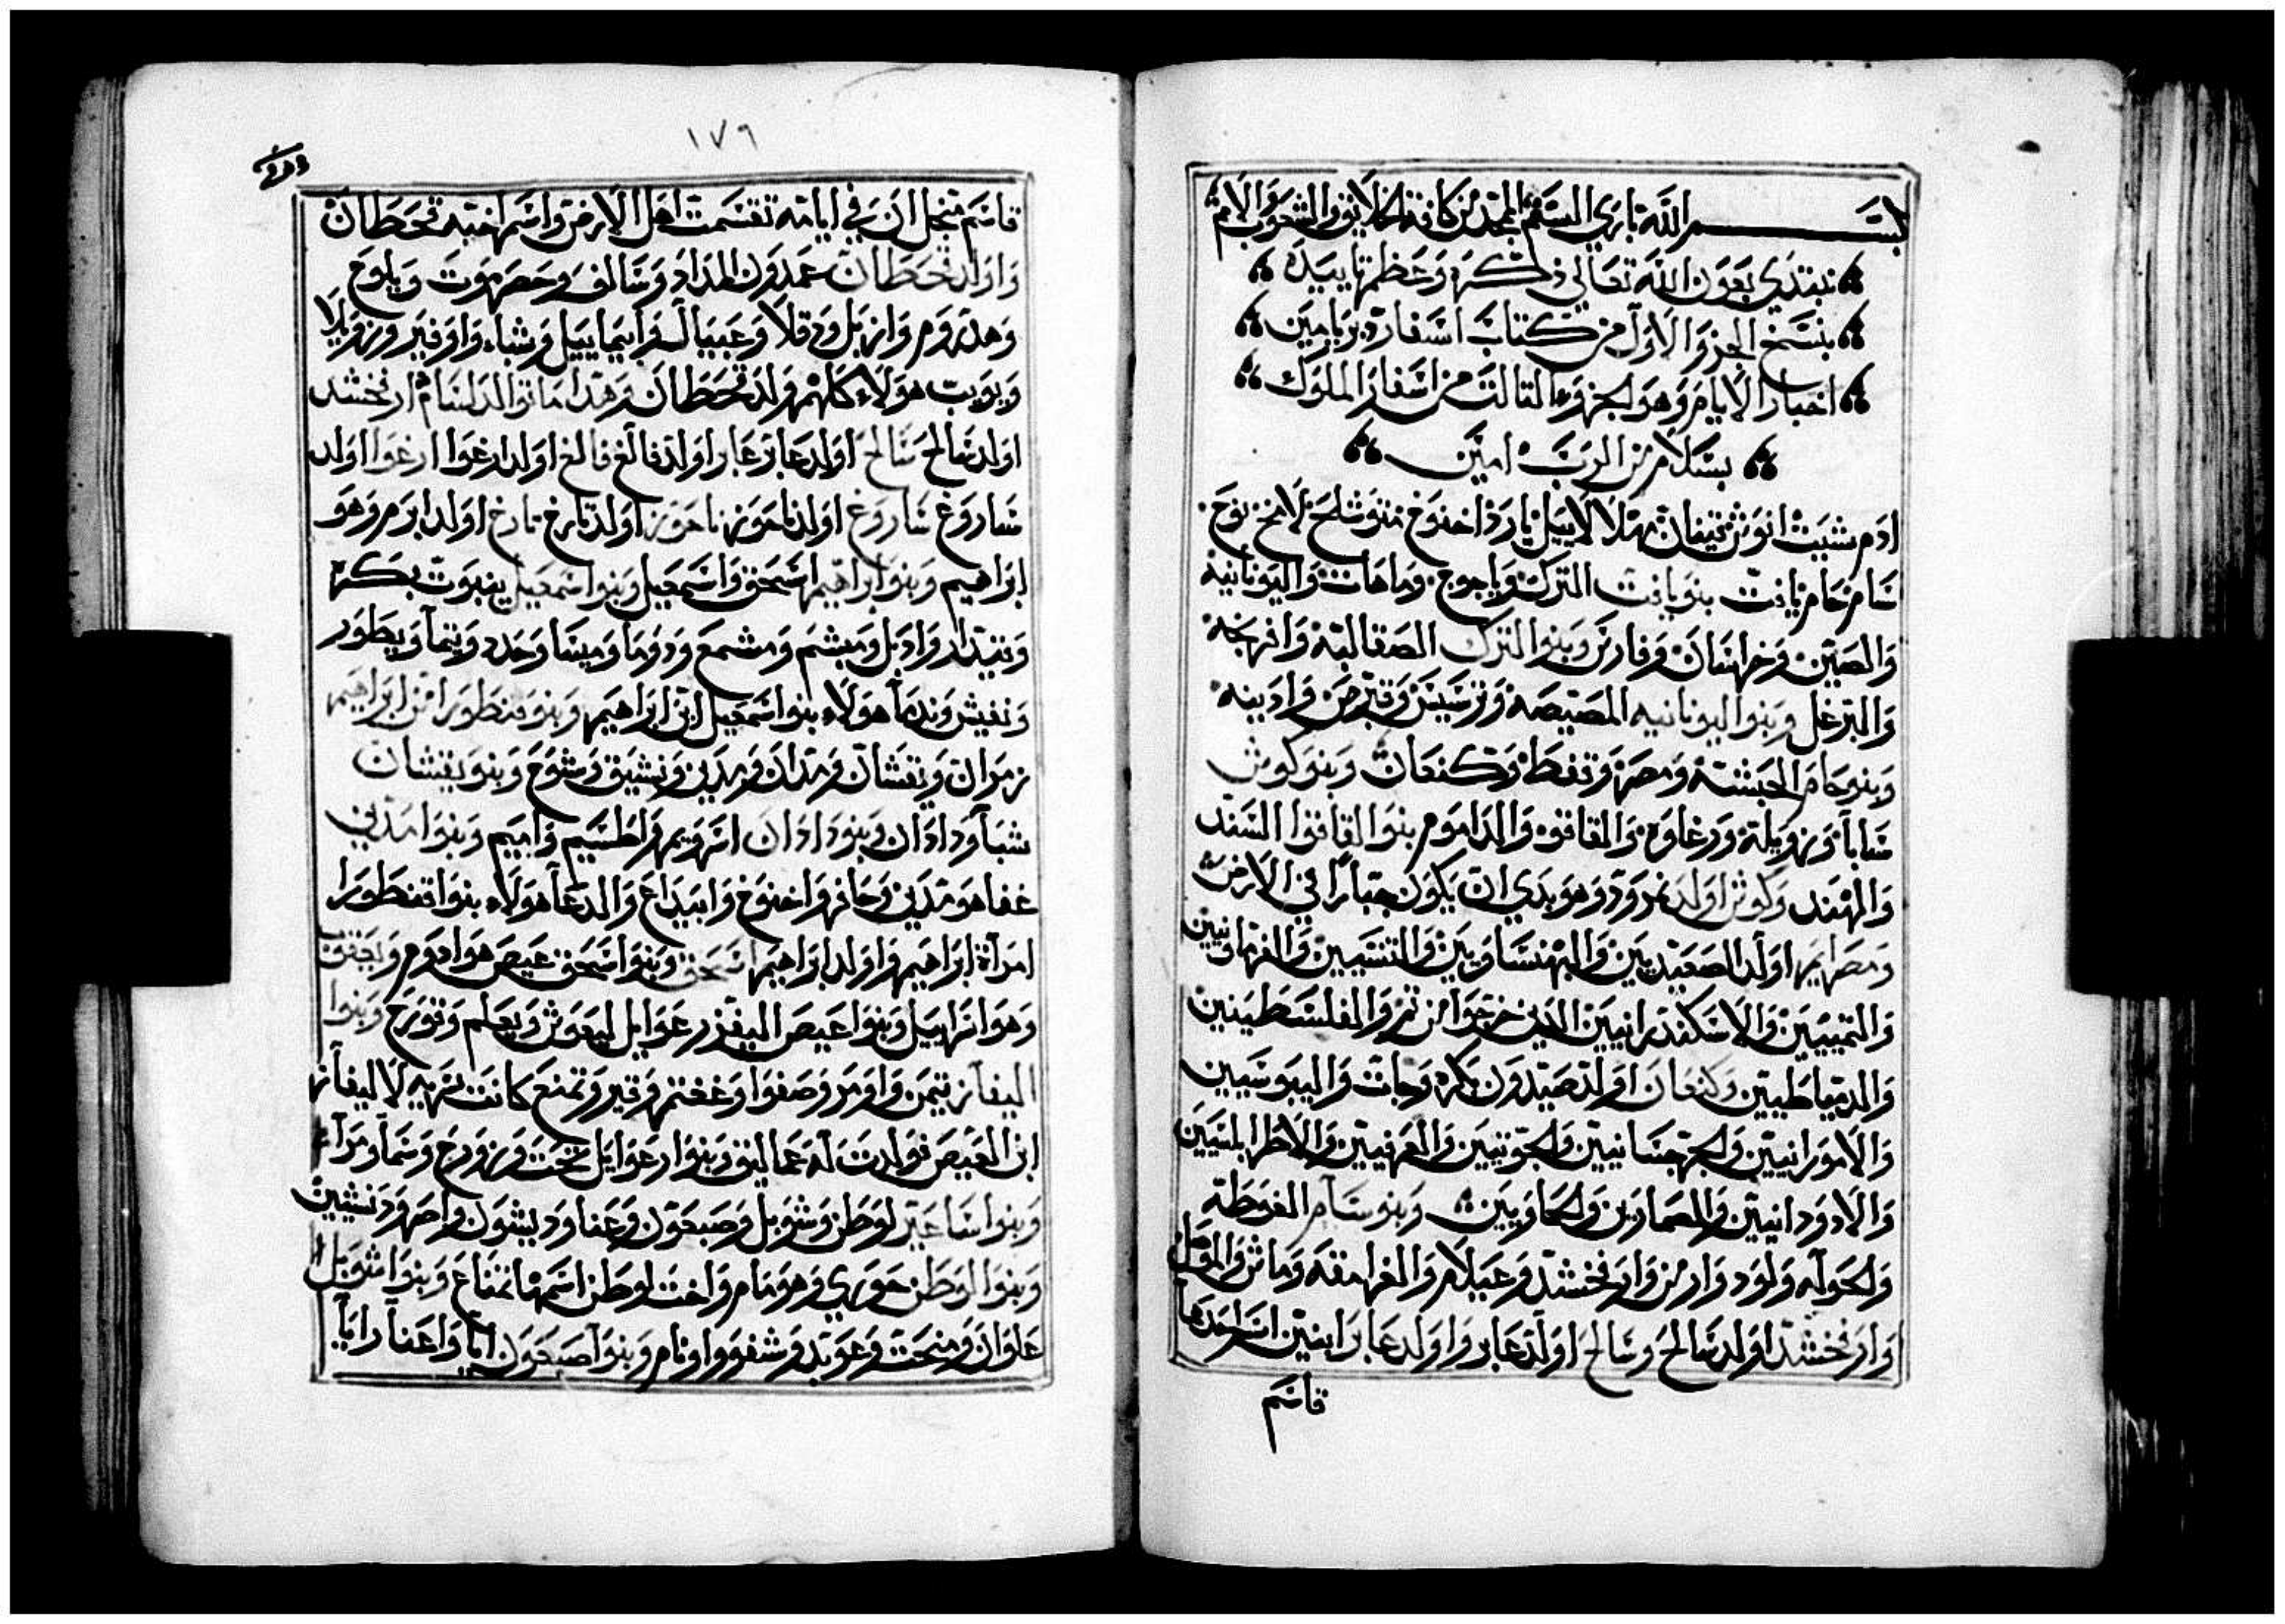 بسم الله باري النسم الممجد من كافة الخلايق والشعوب والامم
نبتدي بعون الله تعالي ذكره وعظم تاييده
بنسخ الجزو الاول من كتاب اسفار دبريامين
اخبار الايام وهو الجزوء التالت من اسفار الملوك
بسلام من الرب امين
ادم شيت انوش قينان مهلالاييل يارد اخنوخ متوشلح لامخ نوح
سام حام يافت بنو يافت الترك وياجوج وماهات واليونانية
والصين وخراسان وفارس وبنوا الترك الصقالبة وافرنجه
والبرغل وبنوا اليونانيه المصيصة وترسيس وقبرص وادبيه
وبنوحام الحبشة ومصر وتفط وكنعان وبنو كوش
سابا وزويلة ودرغاوة والقاقوه والدامومر بنوا القاقوا السند
والهند وكوش اولد نمرود وهو بدي ان يكون جبارا في الارض
ومصرايم اولد الصعيديين والبهنساويين والتنسيين والفرماونيين
والتمييين والاسكندرانيين الذين خرجوا من تم والفلسطينين
والدمياطيين وكنعان اولد صيدون بكره وحات واليبوسيين
والامورانيين والجرجسانيين والحويين والعرقيين والاطرابلسيين
والاروادنيين والصمارين والحماويين وبنو سام الغوطة
والحواله ولود وارمن وارفخشد وعيلام والغرامقه وماش والموصل
وارفخشد اولد سالح وسالح اولد عابر واولد عابر ابنين اسم احدها
قاسم
١٧٦
قاسم فجل ان في ايامه تقسمت اهل الارض واسم اخيه قحطان
واولد قحطان عمدون المداد وسالف وحصرموت ويلوح
وهدروم وازبل ودقلا وعبيال وابيماييل وشباء واوفير وزويلا
ويوبب هولاء كلهم ولد قحطان وهدا ما توالد لسام ارفخشد
اولد سالح سالح اولد عابر عابر اولد فالغ فالغ اولد ارغوا ارغوا اولد
ساروغ ساروغ اولد ناحور ناحور اولد تارخ تارخ اولد ابرم وهو
ابراهيم وبنوا ابراهيم اسحق واسمعيل وبنوا اسمعيل ينبوت بكره
وقيدار وادبل ومبشم ومشمع ودوما وميسا وحدد وتيما ويطور
ونفيش وندما هولاء بنوا اسمعيل ابن ابراهيم وبنو قنطورا من ابراهيم
زمران ويقشان ومدان ومدين ونشيق وشوع وبنو يقشان
شبا ودادان وبنو دادان اشوريم واطسيم واميم وبنوا مدين
عفا هو مدين وحافر واخنوخ وابيداع والدعا هولاء بنوا قنطورا
امراة ابراهيم واولد ابراهيم اسحق وبنوا اسحق عيص هو ادوم ويعقوب
وهو اسراييل وبنوا عيص اليفزر عوايل ليعوش ويعلم وقورح وبنوا
اليفاز تيمن واومر وصفوا وغغتم وقير وتمنع كانت سريه لاليفاز
ابن العيص فولدت له عماليق وبنوا رعوايل نحت وزورح وسما ومزا
وبنوا ساعير لوطن وشوبل وصبعون وعنا وديشون واصر وديشين
وبنوا لوطن حوري وهومام واخت لوطن اسمها تمناع وبنوا شوبل
علوان ومنحت وعوبد وشفوو اونام وبنوا صبعون ايا واعنا رايا